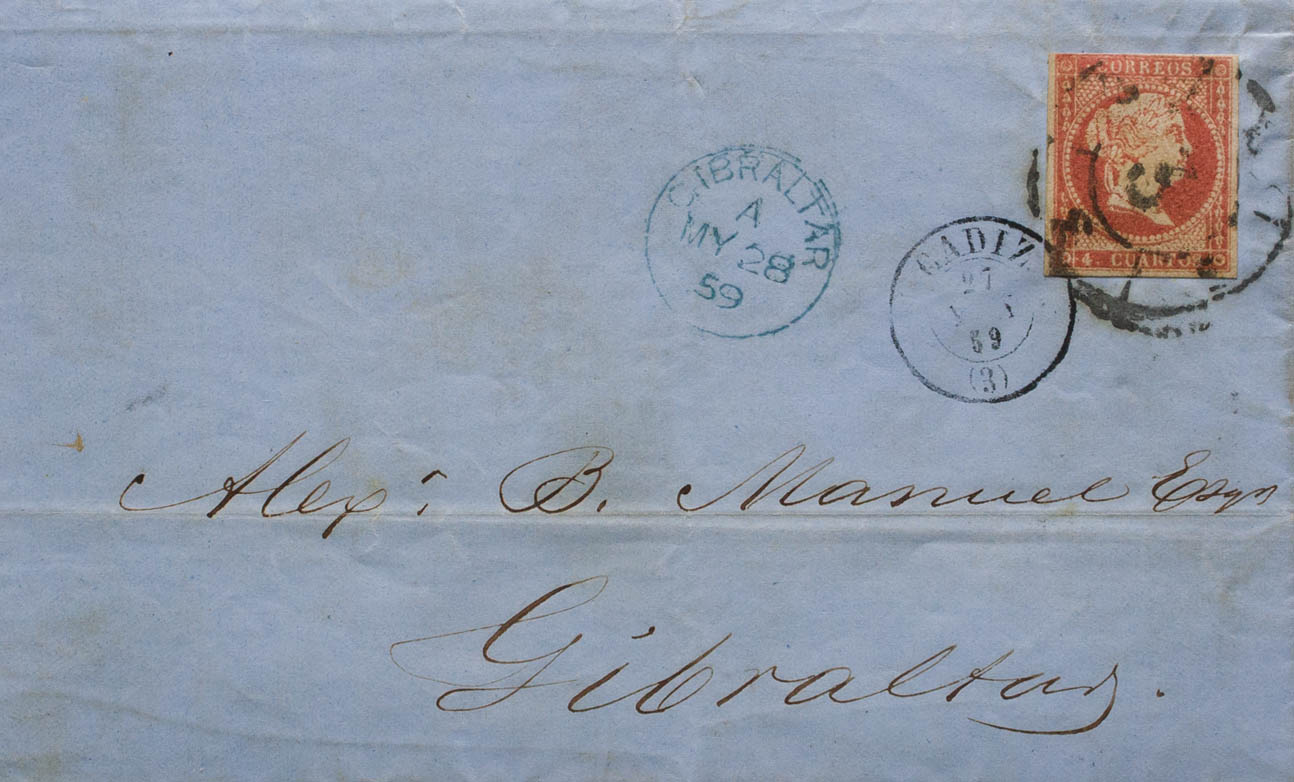 CORREOS
4 CUARTOS
GIBRALTAR
A
MY 28
59
CADIZ
27
59
(3)
Alexr. B. Manuel Esqr
Gibraltar.